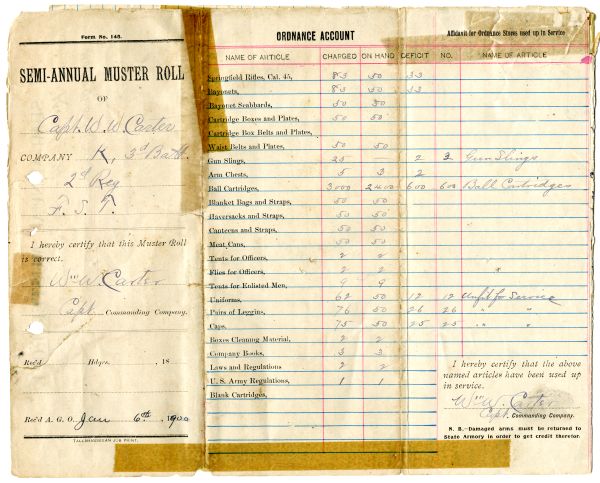 Form No. 148.
SEMI-ANNUAL MUSTER ROLL
OF
Capt. W. W. Carter
COMPANY K, 3d Batt.
2d Reg
F. S. T.
I hereby certify that this Muster Roll
is correct.
Wm W. Carter
Capt. Commanding Company.
Rec'd Hdqrs. 18
Rec'd A. G. O. Jan 6th. 1900
TALLAHASSEEAN JOB PRINT.
ORDNANCE ACCOUNT
NAME OF ARTICLE CHARGED ON HAND DEFICIT
Springfield Rifles, Cal. 45, 83 50 33
Bayonets, 83 50 33
Bayonet Scabbards, 50 50
Cartridge Boxes and Plates, 50 50
Cartridge Box Belts and Plates,
Waist Belts and Plates, 50 50
Gun Slings, 25 — 2
Arm Chests, 5 3 2
Ball Cartridges, 3000 2400 600
Blanket Bags and Straps, 50 50
Haversacks and Straps, 50 50
Canteens and Straps, 50 50
Meat Cans, 50 50
Tents for Officers, 2 2
Flies for Officers, 2 2
Tents for Enlisted Men, 9 9
Uniforms, 62 50 12
Pairs of Leggins, 76 50 26
Caps, 75 50 25
Boxes Cleaning Material, 2 2
Company Books, 3 3
Laws and Regulations 2 2
U. S. Army Regulations, 1 1
Blank Cartridges,
Affidavit for Ordnance Stores used up in Service
NO. NAME OF ARTICLE
2 Gun Slings
600 Ball Cartridges
"
12 Unfit for Service
26 " "
25 " "
I hereby certify that the above
named articles have been used up
in service.
Wm W. Carter
Capt. Commanding Company.
N. B.—Damaged arms must be returned to
State Armory in order to get credit therefor.